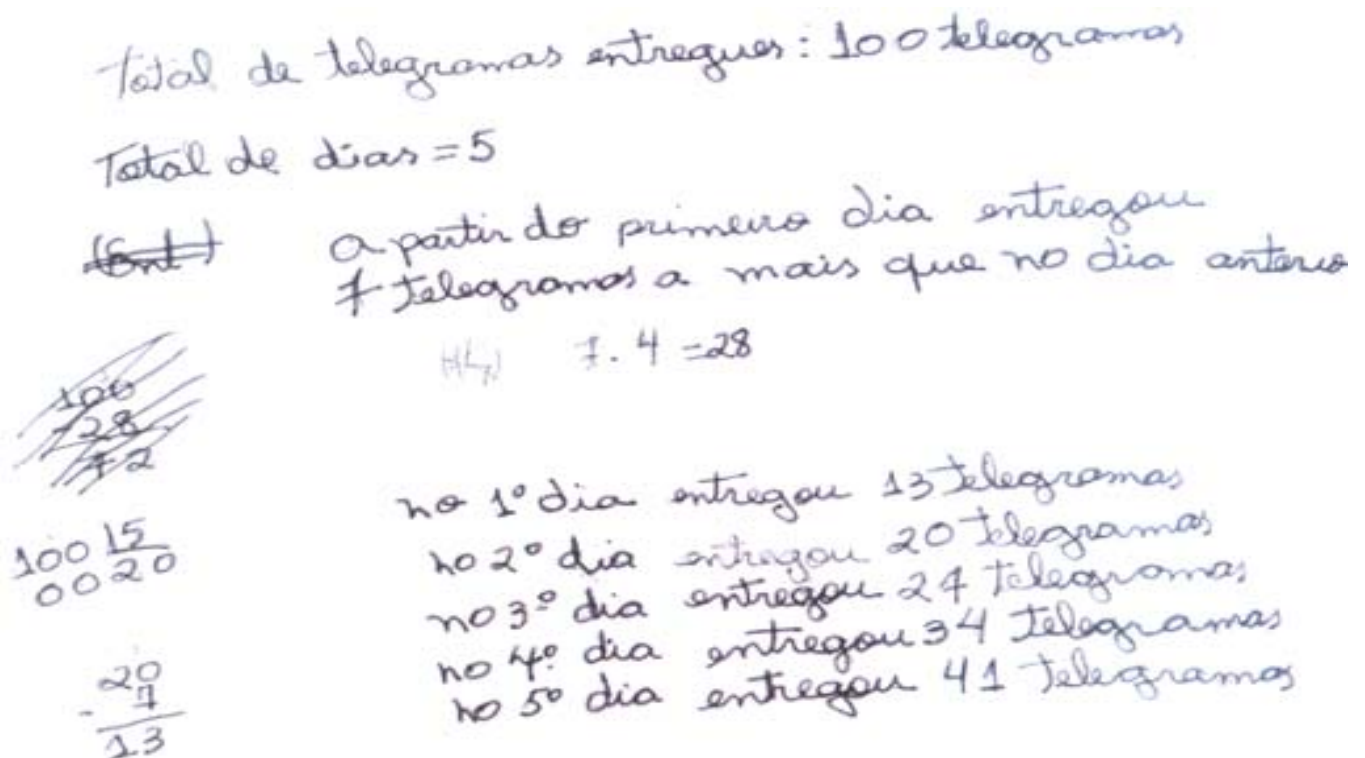 Total de telegramas entregues: 100 telegramas
Total de dias = 5
(Ent)
a partir do primeiro dia entregou
7 telegramas a mais que no dia anterio
7. 4 = 28
100
-28
72
100 5
00 20
20
- 7
13
no 1º dia entregou 13 telegramas
no 2º dia entregou 20 telegramas
no 3º dia entregou 27 telegramas
no 4º dia entregou 34 telegramas
no 5º dia entregou 41 telegramas